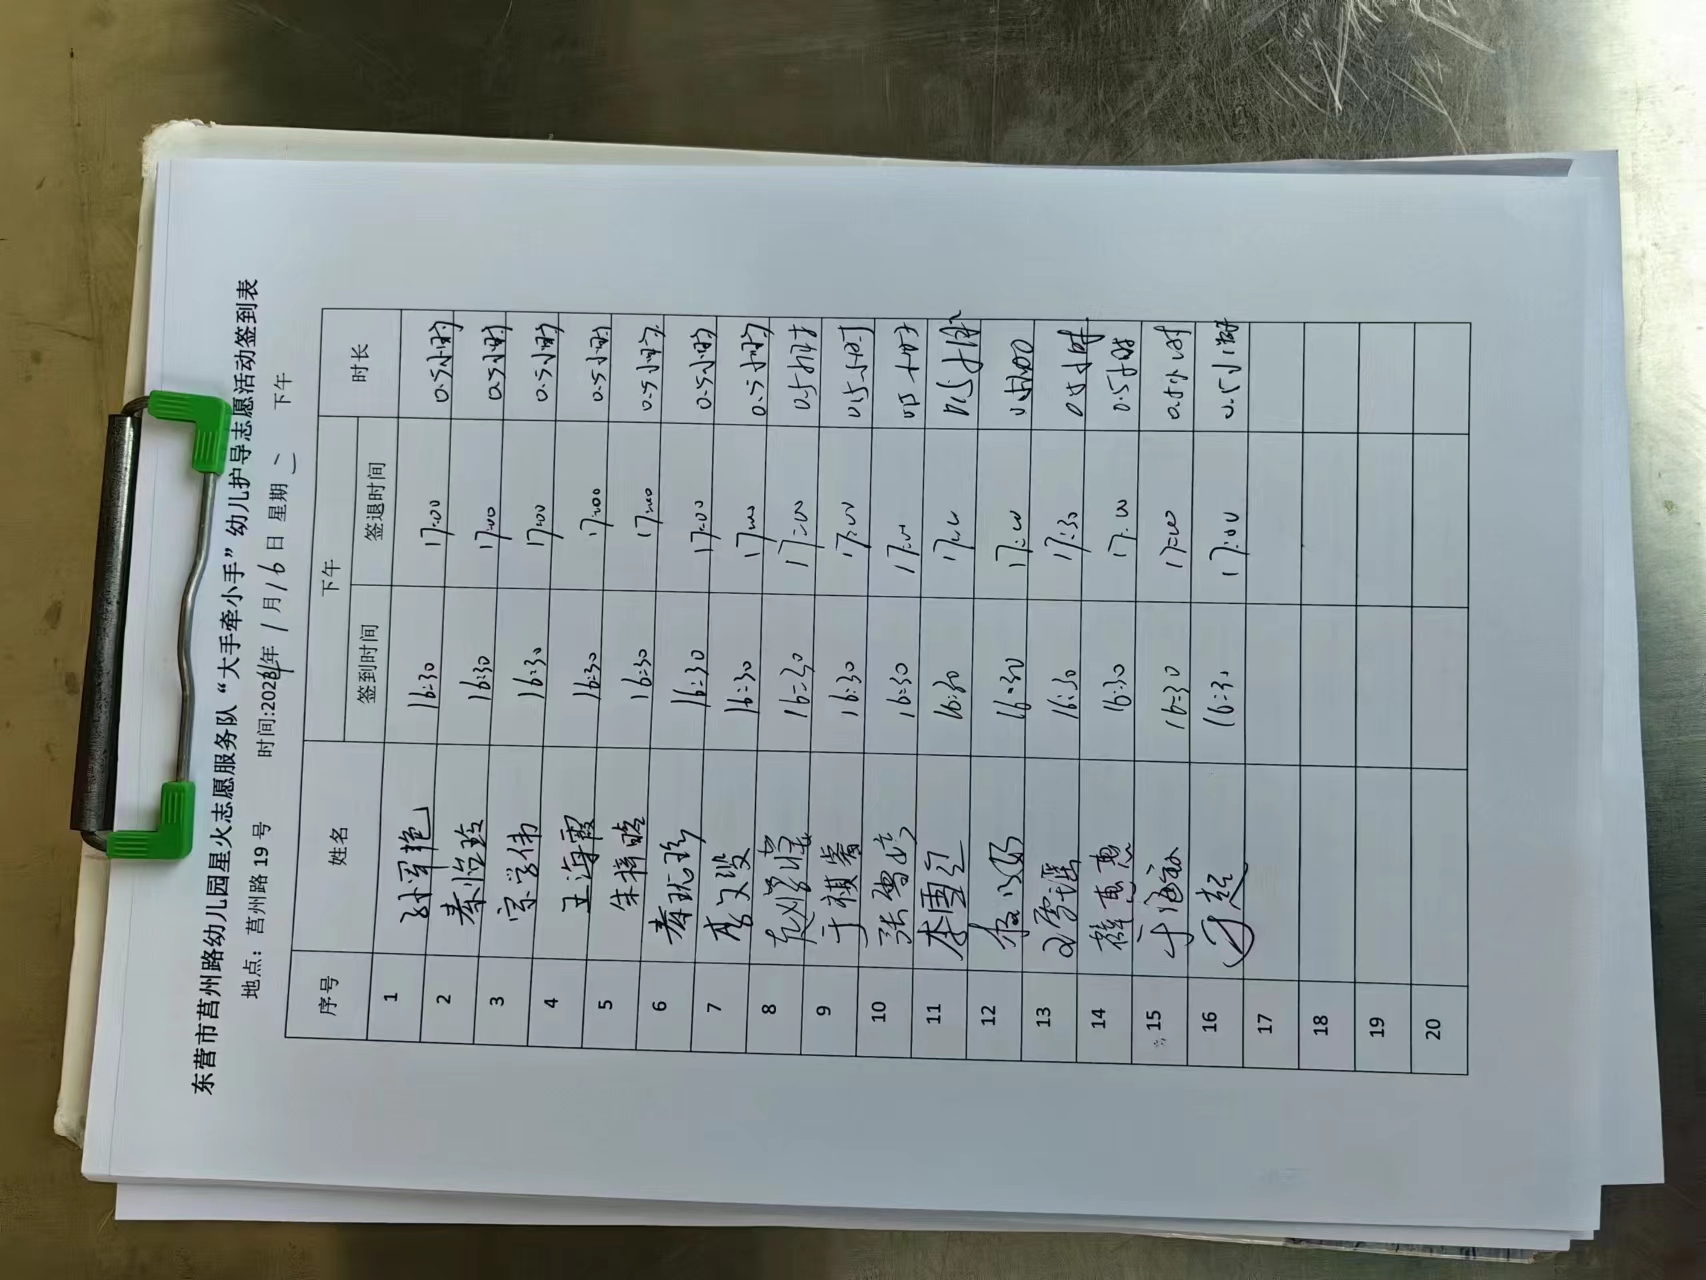 东营市莒州路幼儿园星火志愿服务队“大手牵小手”幼儿护导志愿活动签到表
地点：莒州路19号 时间:2024年1月16日 星期二 下午
序号 姓名 下午 时长
签到时间 签退时间
1 孙军艳 16:30 17:00 0.5小时
2 秦怡玲 16:30 17:00 0.5小时
3 宗学伟 16:30 17:00 0.5小时
4 王海霞 16:30 17:00 0.5小时
5 朱梓晗 16:30 17:00 0.5小时
6 秦珑珍 16:30 17:00 0.5小时
7 李文 16:30 17:00 0.5小时
8 16:30 17:00 0.5小时
9 于祺 16:30 17:00 0.5小时
10 张雪 16:30 17:00 0.5小时
11 李雪 16:30 17:00 0.5小时
12 16:30 17:00
13 16:30 17:30 0.5小时
14 薛惠惠 16:30 17:00 0.5小时
15 于海 16:30 17:00 0.5小时
16 16:30 17:00 0.5小时
17
18
19
20